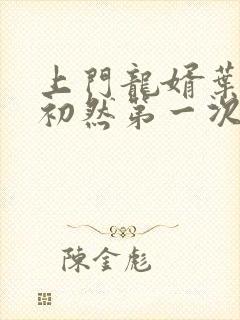 上門龍婿葉
初然第一次
陳金彪